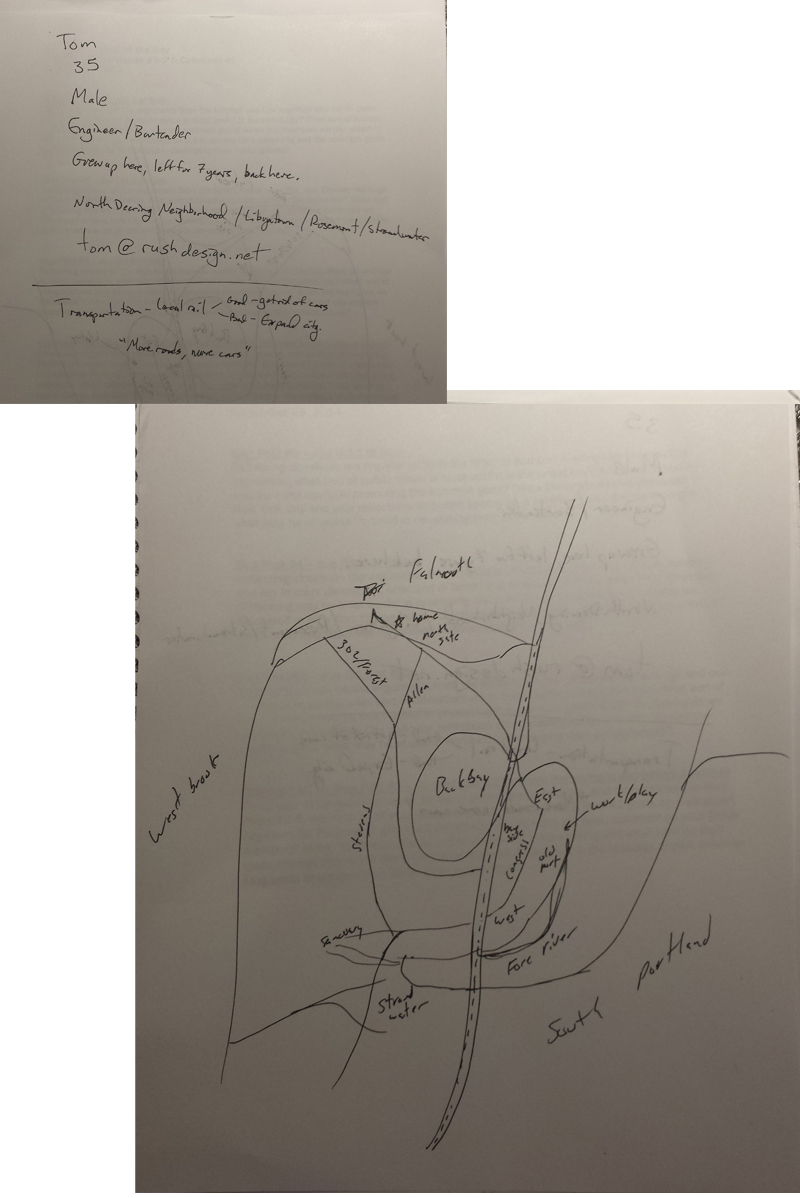 Tom
35
Male
Engineer/Bartender
Grew up here, left for 7 years, back here.
North Deering Neighborhood / Libbytown / Rosemont / Stroudwater
tom@rushdesign.net
Transportation - Local rail
Good - get rid of cars
Bad - Expand city.
"More roads, more cars"
Falmouth
home
north
gate
302/Forest
Allen
West brook
Back Bay
East
work/play
bay
side
Congress
old
port
Stevens
West
Fore river
Strand
water
South Portland